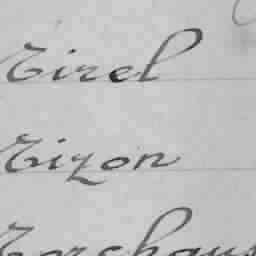 Tirel
Tizon